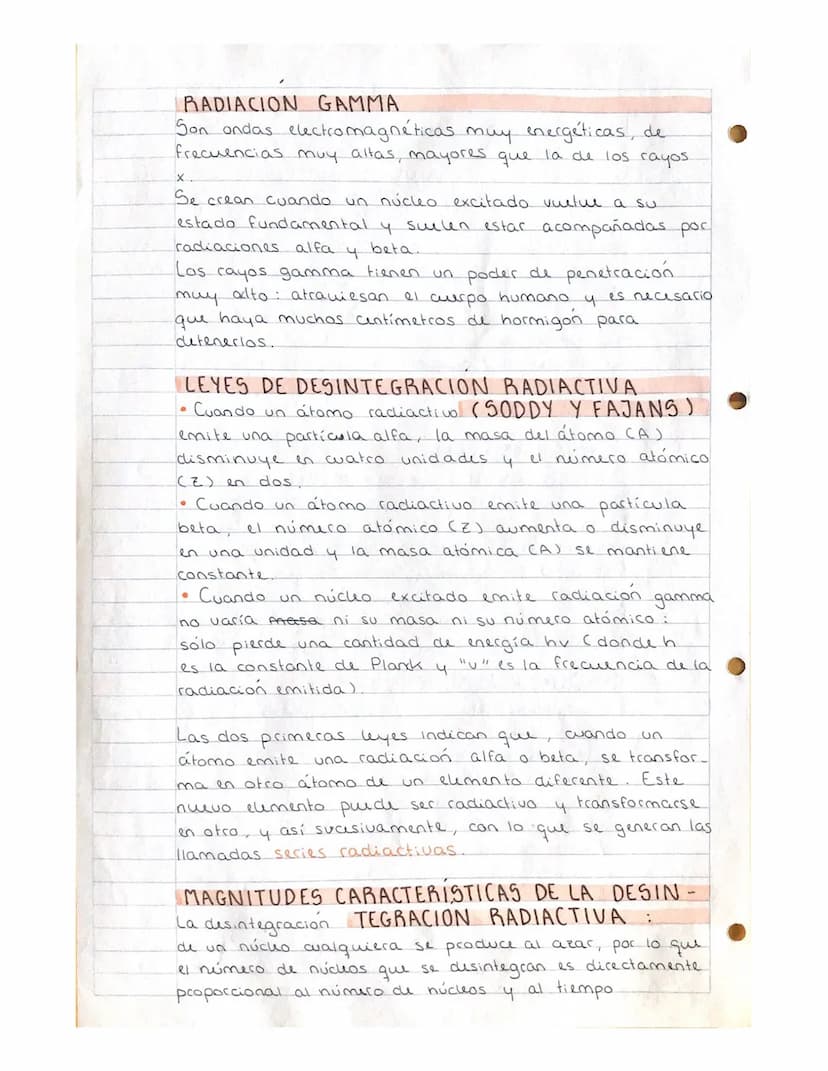 RADIACIÓN GAMMA
Son ondas electromagnéticas muy energéticas, de
frecuencias muy altas, mayores que la de los rayos
x.
Se crean cuando un núcleo excitado vuelve a su
estado fundamental y suelen estar acompañadas por
radiaciones alfa y beta.
Los rayos gamma tienen un poder de penetración
muy alto: atraviesan el cuerpo humano y es necesario
que haya muchos centímetros de hormigón para
detenerlos.
LEYES DE DESINTEGRACIÓN RADIACTIVA
• Cuando un átomo radiactivo (SODDY Y FAJANS)
emite una partícula alfa, la masa del átomo (A)
disminuye en cuatro unidades y el número atómico
(Z) en dos.
• Cuando un átomo radiactivo emite una partícula
beta, el número atómico (Z) aumenta o disminuye
en una unidad y la masa atómica (A) se mantiene
constante.
• Cuando un núcleo excitado emite radiación gamma
no varía masa ni su masa ni su número atómico:
sólo pierde una cantidad de energía hv (donde h
es la constante de Plank y "v" es la frecuencia de la
radiación emitida).
Las dos primeras leyes indican que, cuando un
átomo emite una radiación alfa o beta, se transfor-
ma en otro átomo de un elemento diferente. Este
nuevo elemento puede ser radiactivo y transformarse
en otro, y así sucesivamente, con lo que se generan las
llamadas series radiactivas.
MAGNITUDES CARACTERÍSTICAS DE LA DESIN-
La desintegración TEGRACIÓN RADIACTIVA:
de un núcleo cualquiera se produce al azar, por lo que
el número de núcleos que se desintegran es directamente
proporcional al número de núcleos y al tiempo